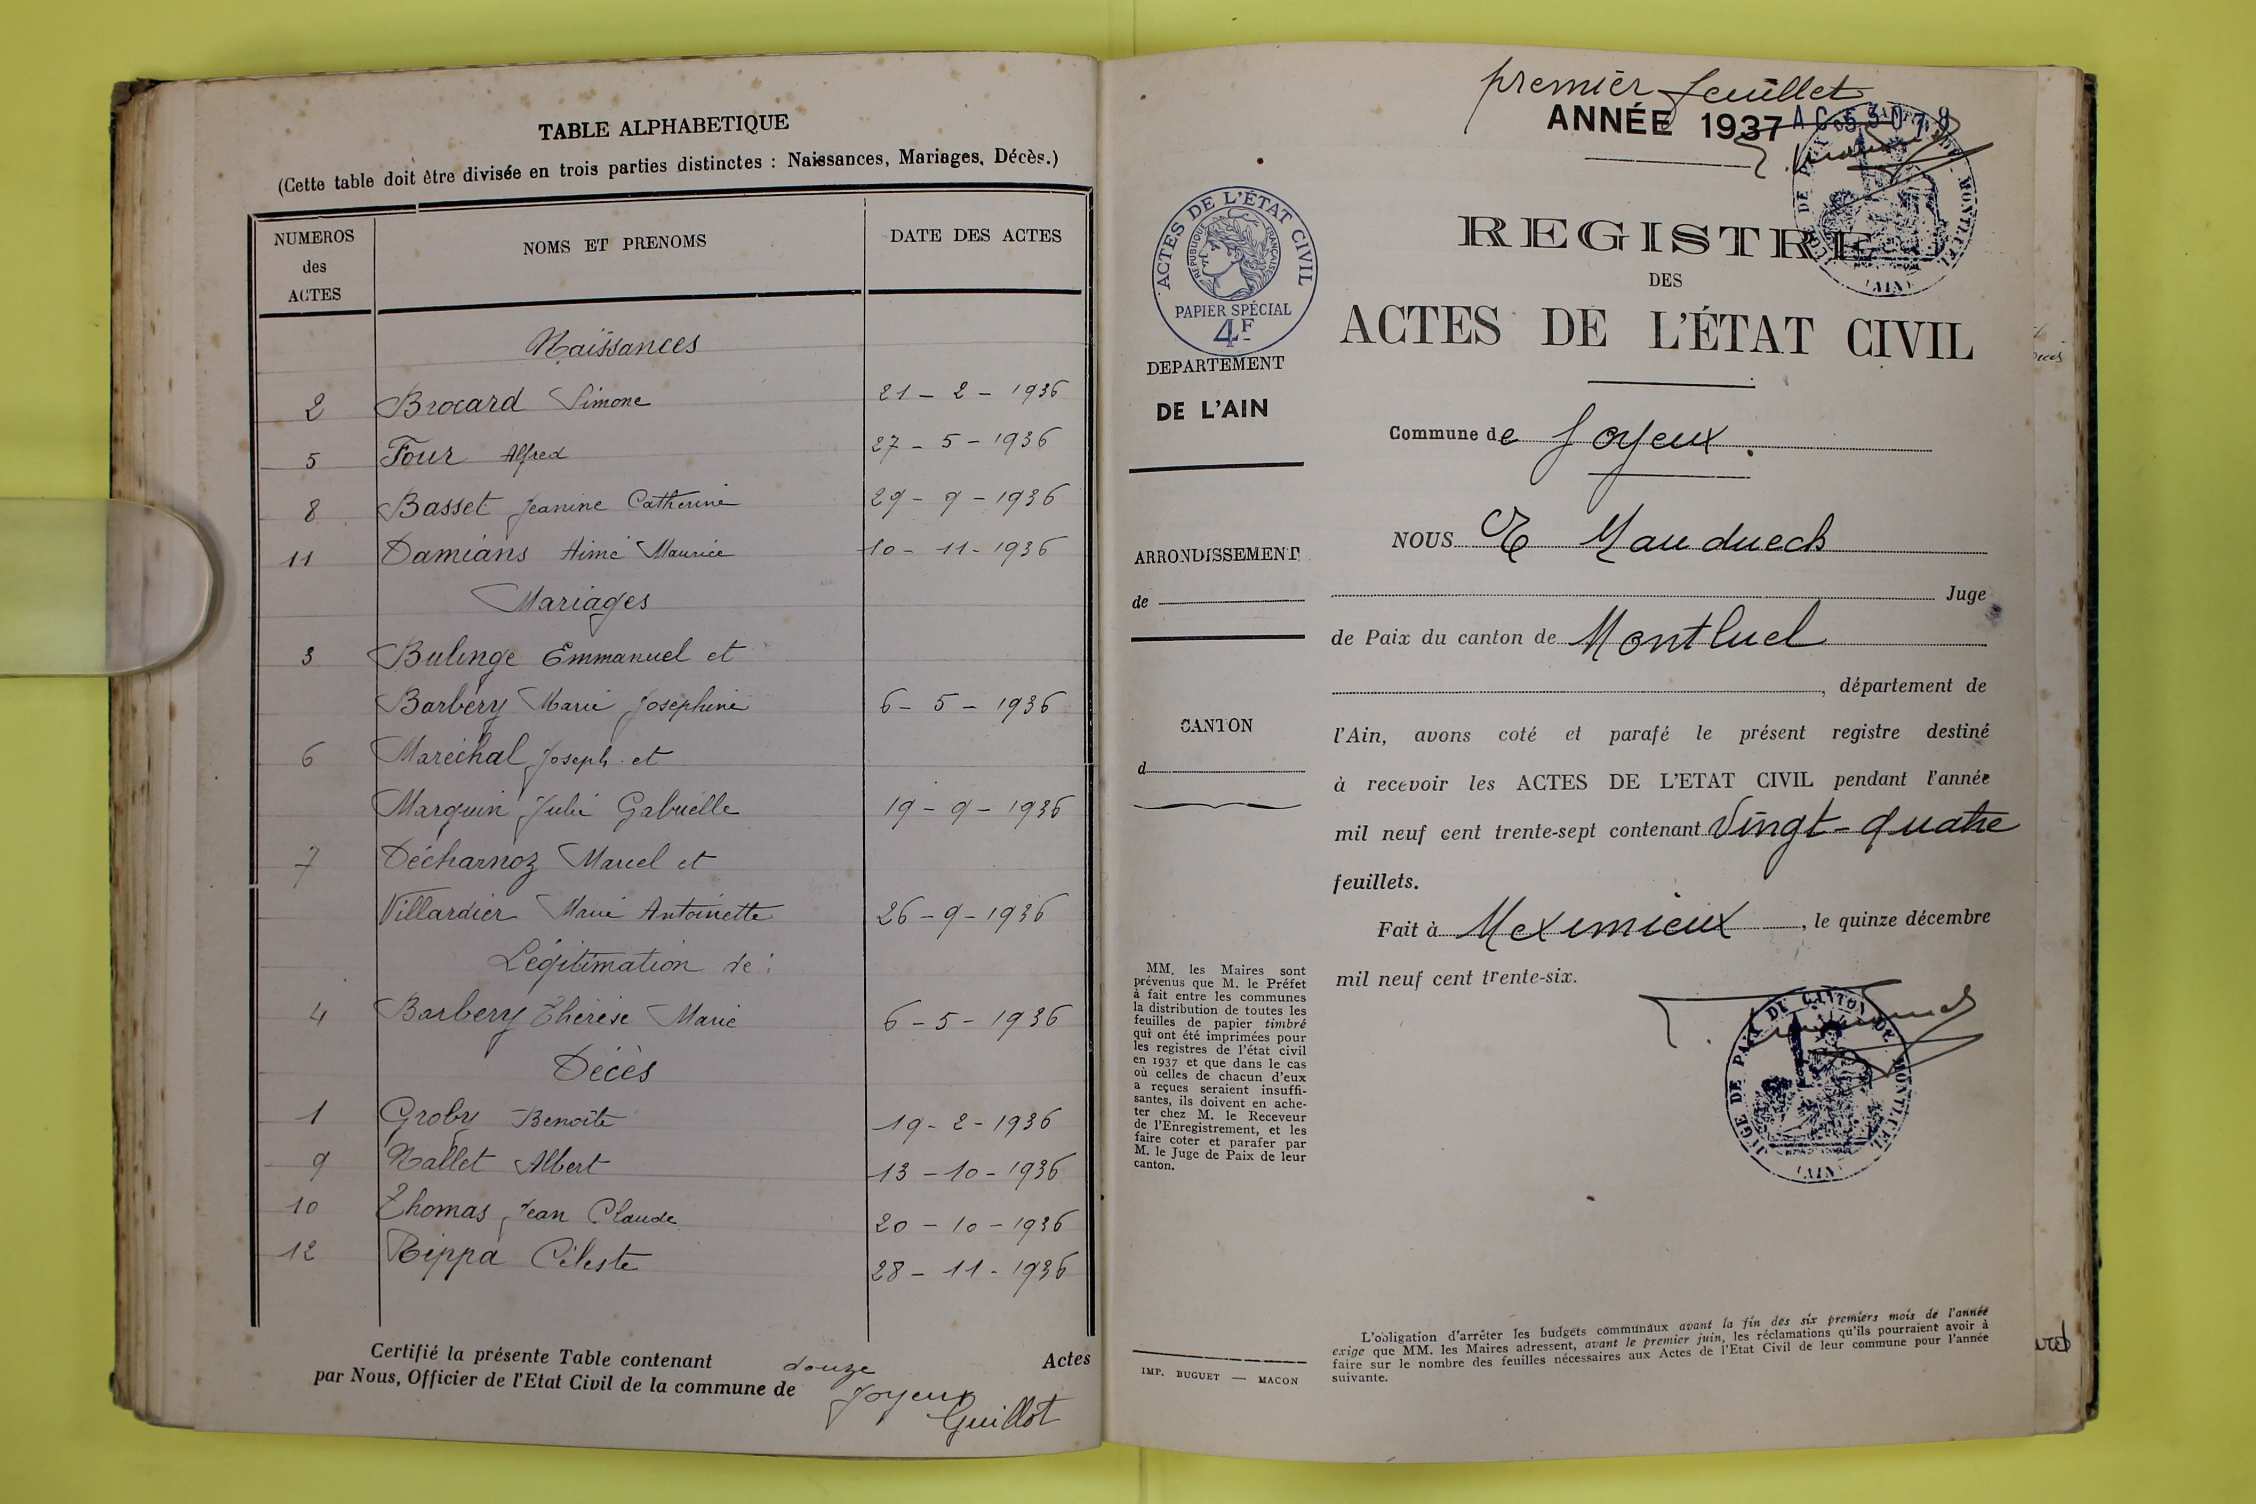 TABLE ALPHABETIQUE
(Cette table doit être divisée en trois parties distinctes : Naissances, Mariages, Décès.)
NUMEROS des ACTES NOMS ET PRENOMS DATE DES ACTES
Naissances
2 Brocard Simone 21 - 2 - 1936
5 Four Alfred 27 - 5 - 1936
8 Basset Jeanine Catherine 29 - 9 - 1936
11 Damians Aimé Maurice 10 - 11 - 1936
Mariages
3 Bulinge Emmanuel et
Barbery Marie Joséphine 6 - 5 - 1936
6 Maréchal Joseph et
Marquin Julie Gabrielle 19 - 9 - 1936
7 Décharnoz Marcel et
Villardier Marie Antoinette 26 - 9 - 1936
Légitimation de :
4 Barbery Thérèse Marie 6 - 5 - 1936
Décès
1 Groby Benoîte 19 - 2 - 1936
9 Nallet Albert 13 - 10 - 1936
10 Thomas Jean Claude 20 - 10 - 1936
12 Rippa Céleste 28 - 11 - 1936
Certifié la présente Table contenant douze Actes
par Nous, Officier de l'Etat Civil de la commune de Joyeux
Guillot
premier feuillet
ANNÉE 1937
REGISTRE
DES
ACTES DE L'ÉTAT CIVIL
ACTES DE L'ÉTAT CIVIL
RÉPUBLIQUE FRANÇAISE
PAPIER SPÉCIAL
4F
DEPARTEMENT
DE L'AIN
ARRONDISSEMENT
de
CANTON
d
MM. les Maires sont
prévenus que M. le Préfet
à fait entre les communes
la distribution de toutes les
feuilles de papier timbré
qui ont été imprimées pour
les registres de l'état civil
en 1937 et que dans le cas
où celles de chacun d'eux
a reçues seraient insuffi-
santes, ils doivent en ache-
ter chez M. le Receveur
de l'Enregistrement, et les
faire coter et parafer par
M. le Juge de Paix de leur
canton.
IMP. BUGUET — MACON
Commune de Joyeux.
NOUS
Juge
de Paix du canton de Montluel
, département de
l'Ain, avons coté et parafé le présent registre destiné
à recevoir les ACTES DE L'ETAT CIVIL pendant l'année
mil neuf cent trente-sept contenant Vingt-quatre
feuillets.
Fait à Meximieux, le quinze décembre
mil neuf cent trente-six.
JUGE DE PAIX DU CANTON DE MONTLUEL
(AIN)
L'obligation d'arrêter les budgets communaux avant la fin des six premiers mois de l'année
exige que MM. les Maires adressent, avant le premier juin, les réclamations qu'ils pourraient avoir à
faire sur le nombre des feuilles nécessaires aux Actes de l'Etat Civil de leur commune pour l'année
suivante.